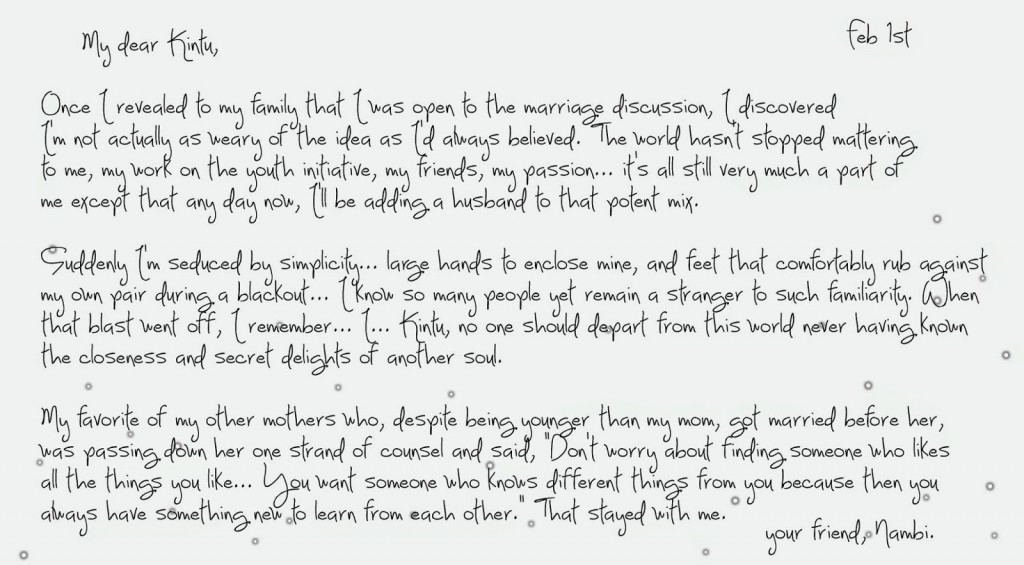 My dear Kintu,
Feb 1st
Once I revealed to my family that I was open to the marriage discussion, I discovered
I'm not actually as weary of the idea as I'd always believed. The world hasn't stopped mattering
to me, my work on the youth initiative, my friends, my passion... it's all still very much a part of
me except that any day now, I'll be adding a husband to that potent mix.
Suddenly I'm seduced by simplicity... large hands to enclose mine, and feet that comfortably rub against
my own pair during a blackout... I know so many people yet remain a stranger to such familiarity. When
that blast went off, I remember... I... Kintu, no one should depart from this world never having known
the closeness and secret delights of another soul.
My favorite of my other mothers who, despite being younger than my mom, got married before her,
was passing down her one strand of counsel and said, "Don't worry about finding someone who likes
all the things you like... You want someone who knows different things from you because then you
always have something new to learn from each other." That stayed with me.
your friend, Nambi.